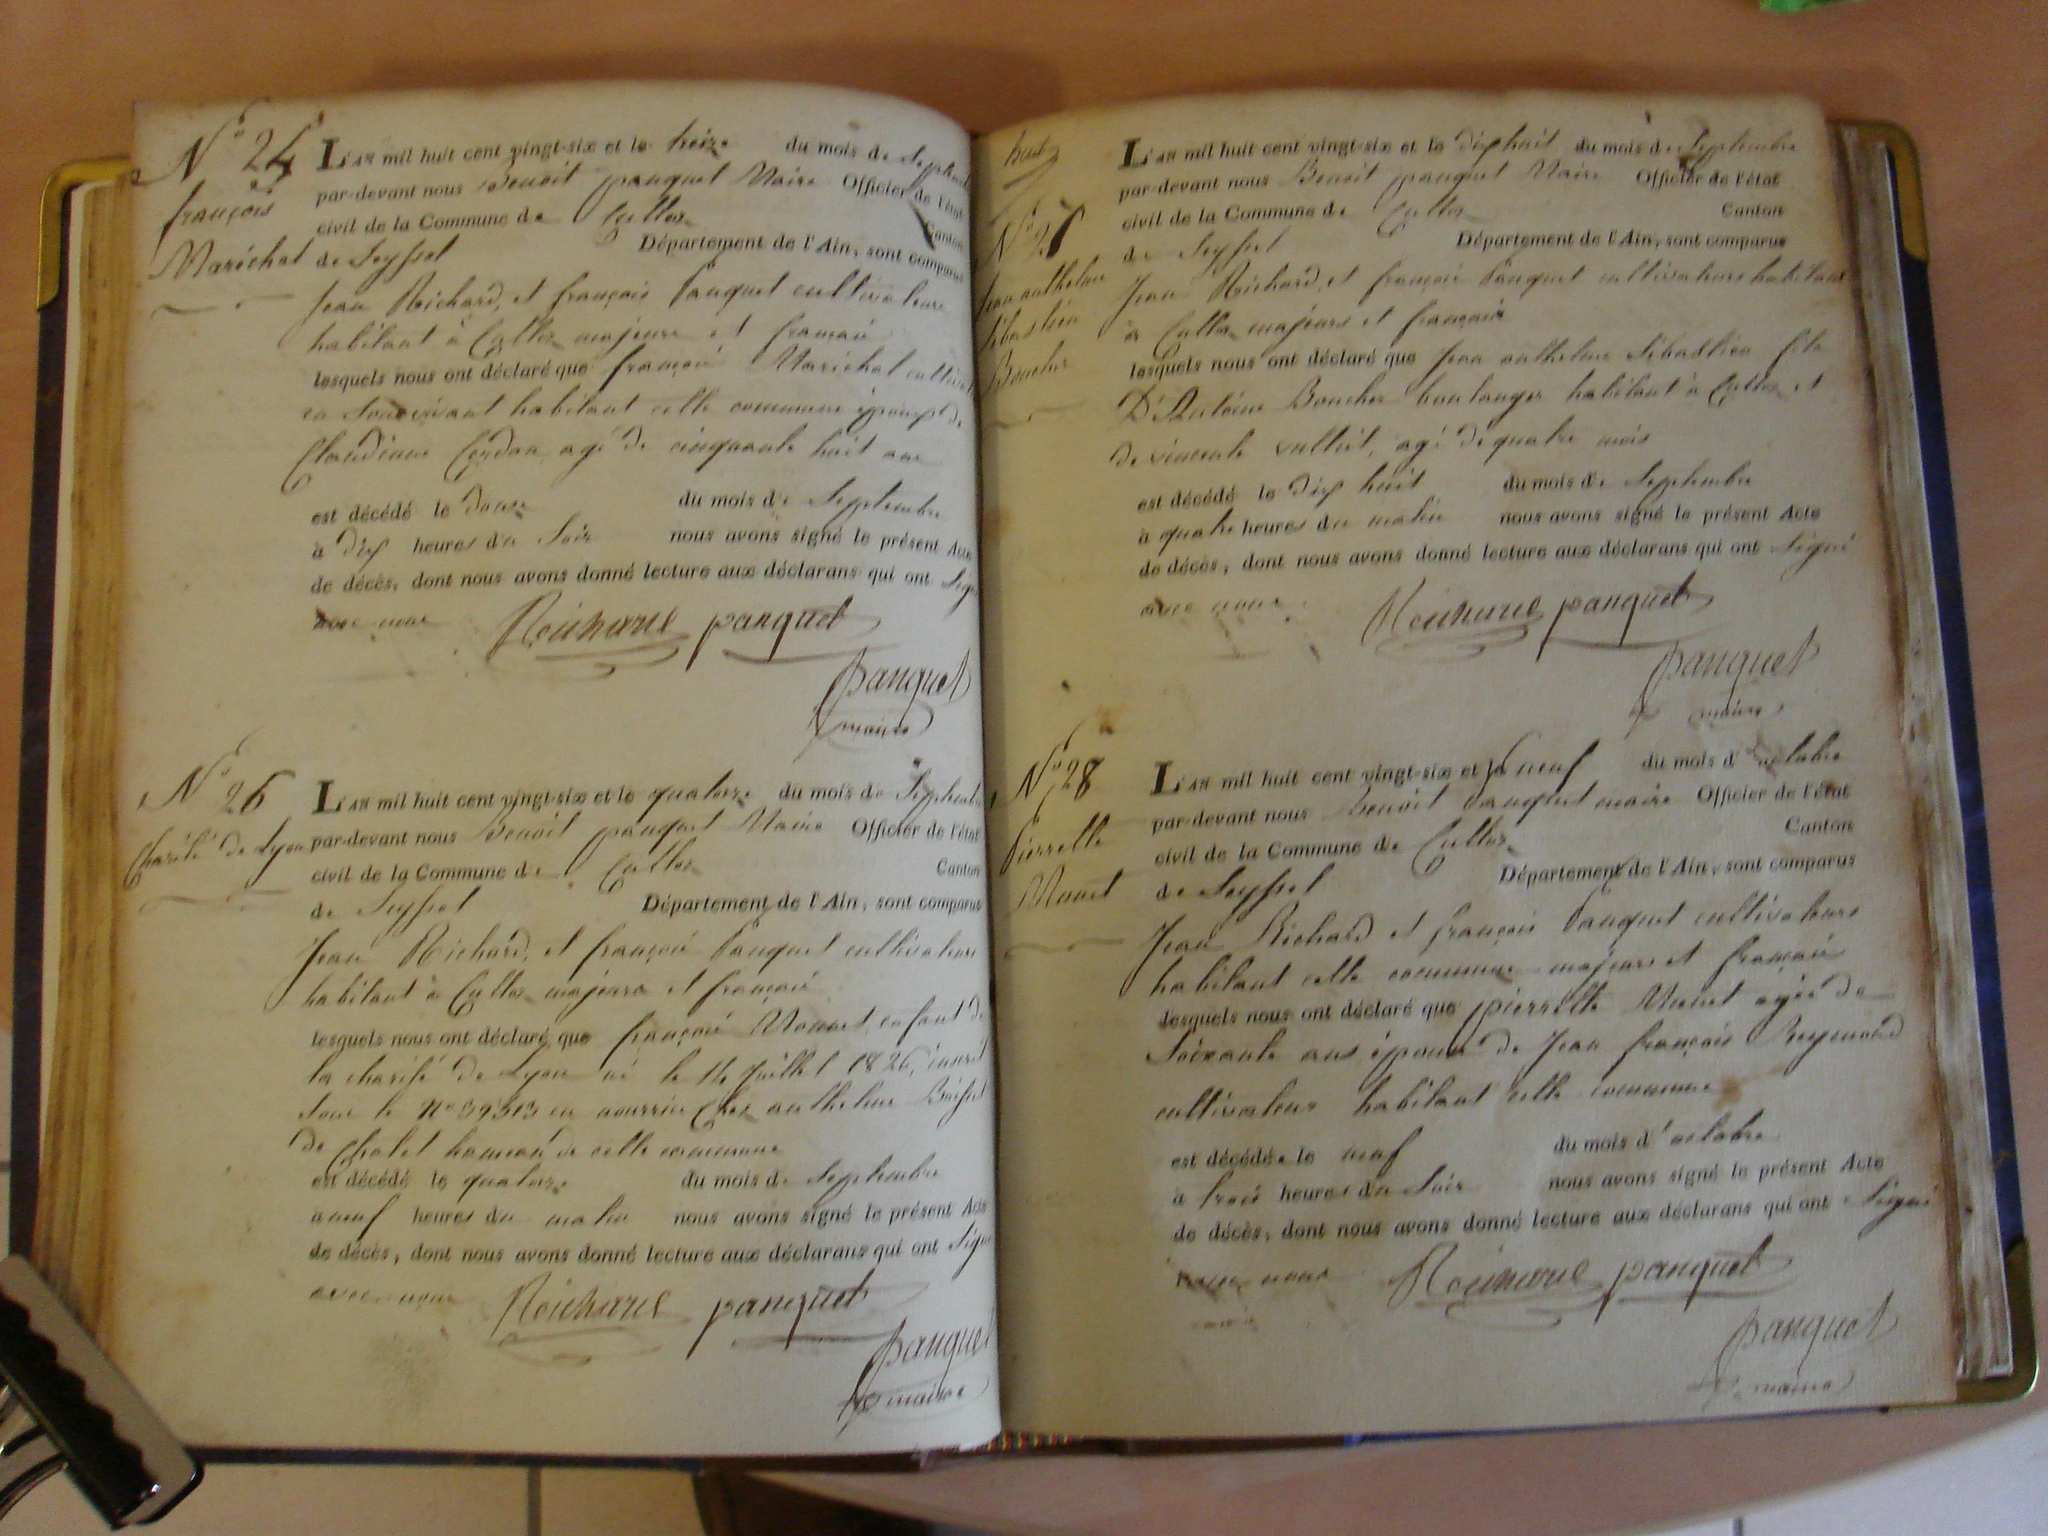 N° 24
françois
Maréchal
L'AN mil huit cent vingt-six et le treize du mois de Septembre
par-devant nous Benoit panquet Maire Officier de l'état
civil de la Commune de Culloz Canton
de Seyssel Département de l'Ain, sont comparus
Jean Richard, et françois Panquet cultivateurs
habitant à Culloz majeurs et francais
lesquels nous ont déclaré que françois Maréchal cultivateur
en son vivant habitant cette commune époux de
Claudine Cerdon agé de cinquante huit ans
est décédé le douze du mois de Septembre
à dix heures du Soir nous avons signé le présent Acte
de décès, dont nous avons donné lecture aux déclarans qui ont Signé
avec nous Reichard panquet
panquet
maire
N° 26
Charité de Lyon
L'AN mil huit cent vingt-six et le quatorze du mois de Septembre
par-devant nous Benoit panquet Maire Officier de l'état
civil de la Commune de Culloz Canton
de Seyssel Département de l'Ain, sont comparus
Jean Richard, et françois Panquet cultivateurs
habitant à Culloz majeurs et francais
lesquels nous ont déclaré que françois enfant de
la charité de Lyon né le 14 Juillet 1826, inscrit
sous le N° 39513 en nourrice chez anthelme
de Cholet hameau de cette commune
est décédé le quatorze du mois de Septembre
a neuf heures du matin nous avons signé le présent Acte
de décès, dont nous avons donné lecture aux déclarans qui ont Signé
avec nous Reichard panquet
panquet
maire
huit
N° 27
Jean anthelme
Sébastien
Boucher
L'AN mil huit cent vingt-six et le dix huit du mois de Septembre
par-devant nous Benoit panquet Maire Officier de l'état
civil de la Commune de Culloz Canton
de Seyssel Département de l'Ain, sont comparus
Jean Richard, et françois Panquet cultivateurs habitans
à Culloz majeurs et francais
lesquels nous ont déclaré que Jean anthelme Sébastien fils
D'Antoine Boucher boulanger habitant à Culloz et
de vincente agé de quatre mois
est décédé le dix huit du mois de Septembre
à quatre heures du matin nous avons signé le présent Acte
de décès, dont nous avons donné lecture aux déclarans qui ont Signé
avec nous Reichard panquet
panquet
maire
N° 28
Pierrette
Monet
L'AN mil huit cent vingt-six et le neuf du mois d'octobre
par-devant nous Benoit Panquet maire Officier de l'état
civil de la Commune de Culloz Canton
de Seyssel Département de l'Ain, sont comparus
Jean Richard et françois Panquet cultivateurs
habitant cette commune majeurs et francais
lesquels nous ont déclaré que pierrette Monet agée de
Soixante ans épouse de Jean françois Reymond
cultivateur habitant cette commune
est décédée le neuf du mois d'octobre
à trois heures du Soir nous avons signé le présent Acte
de décès, dont nous avons donné lecture aux déclarans qui ont Signé
avec nous Reichard panquet
panquet
maire